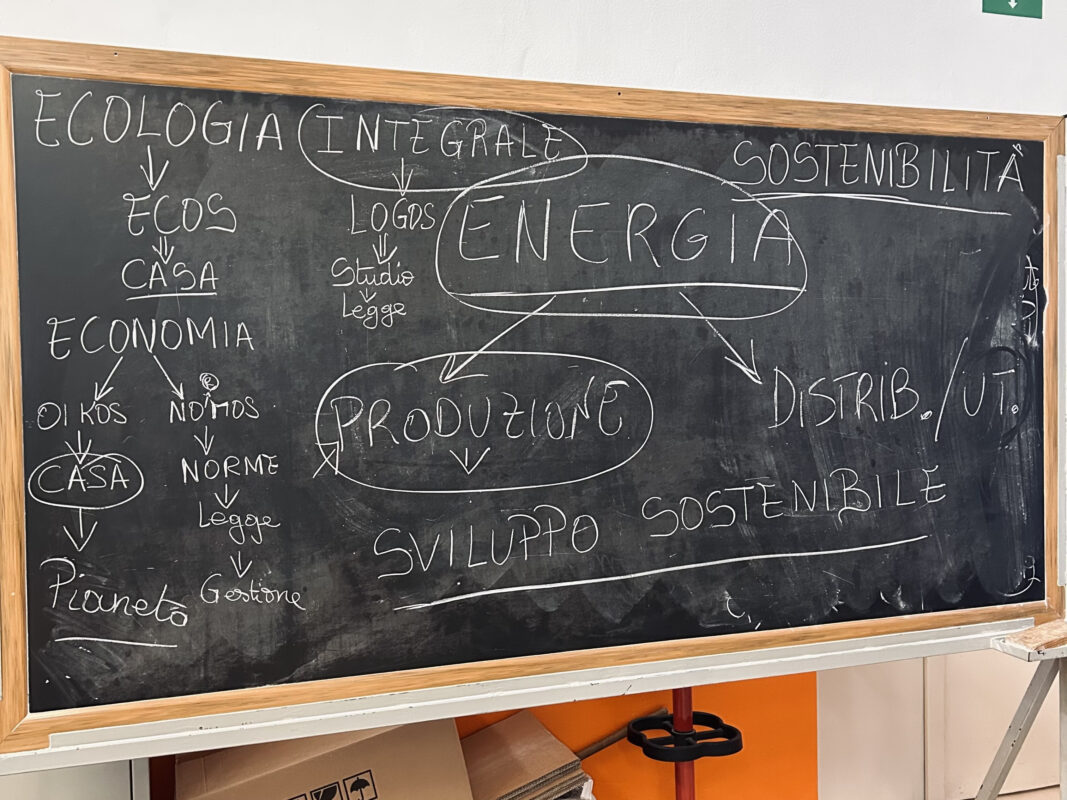 ECOLOGIA INTEGRALE
SOSTENIBILITÀ
ECOS
LOGOS
ENERGIA
CASA
Studio
Legge
ECONOMIA
OIKOS NOMOS
PRODUZIONE
DISTRIB./UT.
CASA
NORME
Legge
SVILUPPO SOSTENIBILE
Pianeta
Gestione